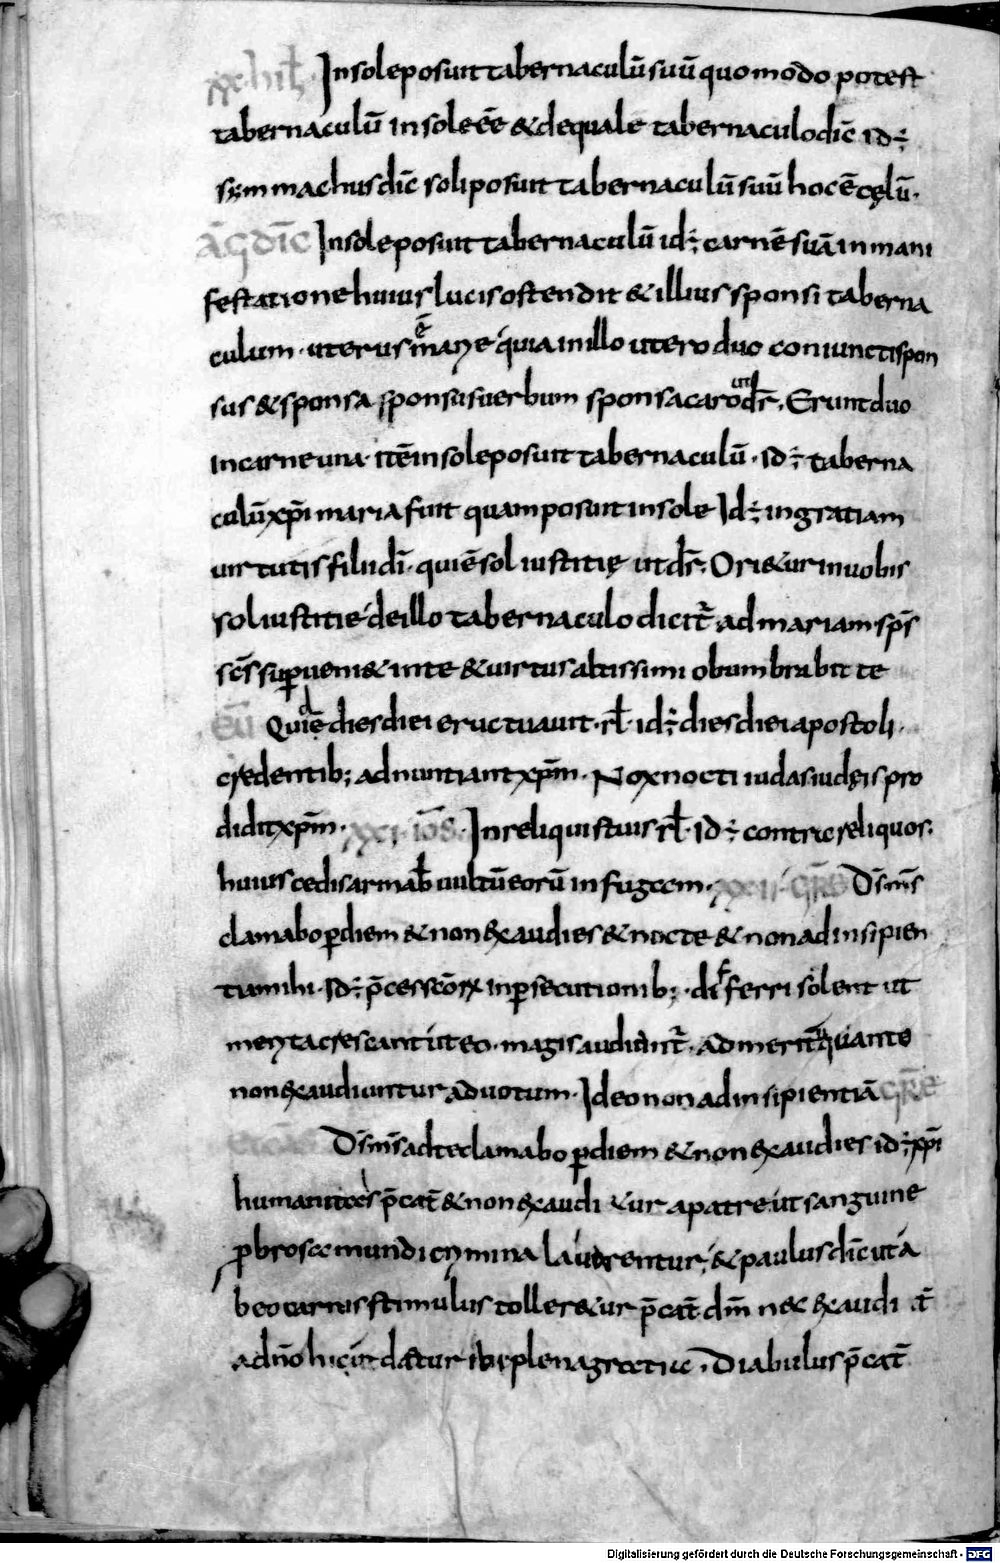 xx. hil. Insoleposuit tabernaculū suū quomodo potest
tabernaculū insole eē & dequale tabernaculo dic̄ id÷
symmachus dic̄ soli posuit tabernaculū suū hoc ē cęlū.
āḡ dīc Insole posuit tabernaculū id÷ carnē suā in mani
festatione huius lucis ostendit & illius sponsi taberna
culum. uterus ē quia in illo utero duo coniuncti spon
sus & sponsa sponsus uerbum sponsa caro ut dr̄. Erunt duo
incarne una. itē insole posuit tabernaculū. id÷ taberna
culū xp̄i maria fuit quam posuit insole Id÷ in gratiam
uirtutis filii dī. qui ē sol iustitię ut dr̄. Ori&ur in uobis
sol iustitie de illo tabernaculo dicit̄ ad mariam sp̄s
sc̄s superueni& inte & uirtus altissimi obumbrabit te
ēū Quid ē dies diei eructuauit. rł id÷ dies diei apostoli.
credentib; adnuntiant xp̄m. Nox nocti iudas iudęis pro
didit xp̄m. xxi. iōs. In reliquis tuis rł. id÷ contra reliquos.
huius cedis armab uultū eorū in fugam. xxii. gr̄s Ds̄ ms̄
clamabo p̄diem & non exaudies & nocte & non ad insipien
tiam mihi. id÷ p̄ces sc̄orx in persecutionib; differri solent ut
magis audiant̄. Ad meritū quante
non exaudiuntur ad uotum. Ideo non ad insipientiā
Ds̄ ms̄ ad te clamabo p̄diem & non exaudies id÷ xp̄i
humanitas p̄cat̄ & non exaudi&ur apatre ut sanguine
probrosa mundi crymina lauarentur. & paulus dic̄ ut a
beo carnis stimulus toller&ur p̄cat̄ dm̄ nec exaudi
datur plena gratiae. Diabulus p̄cat̄